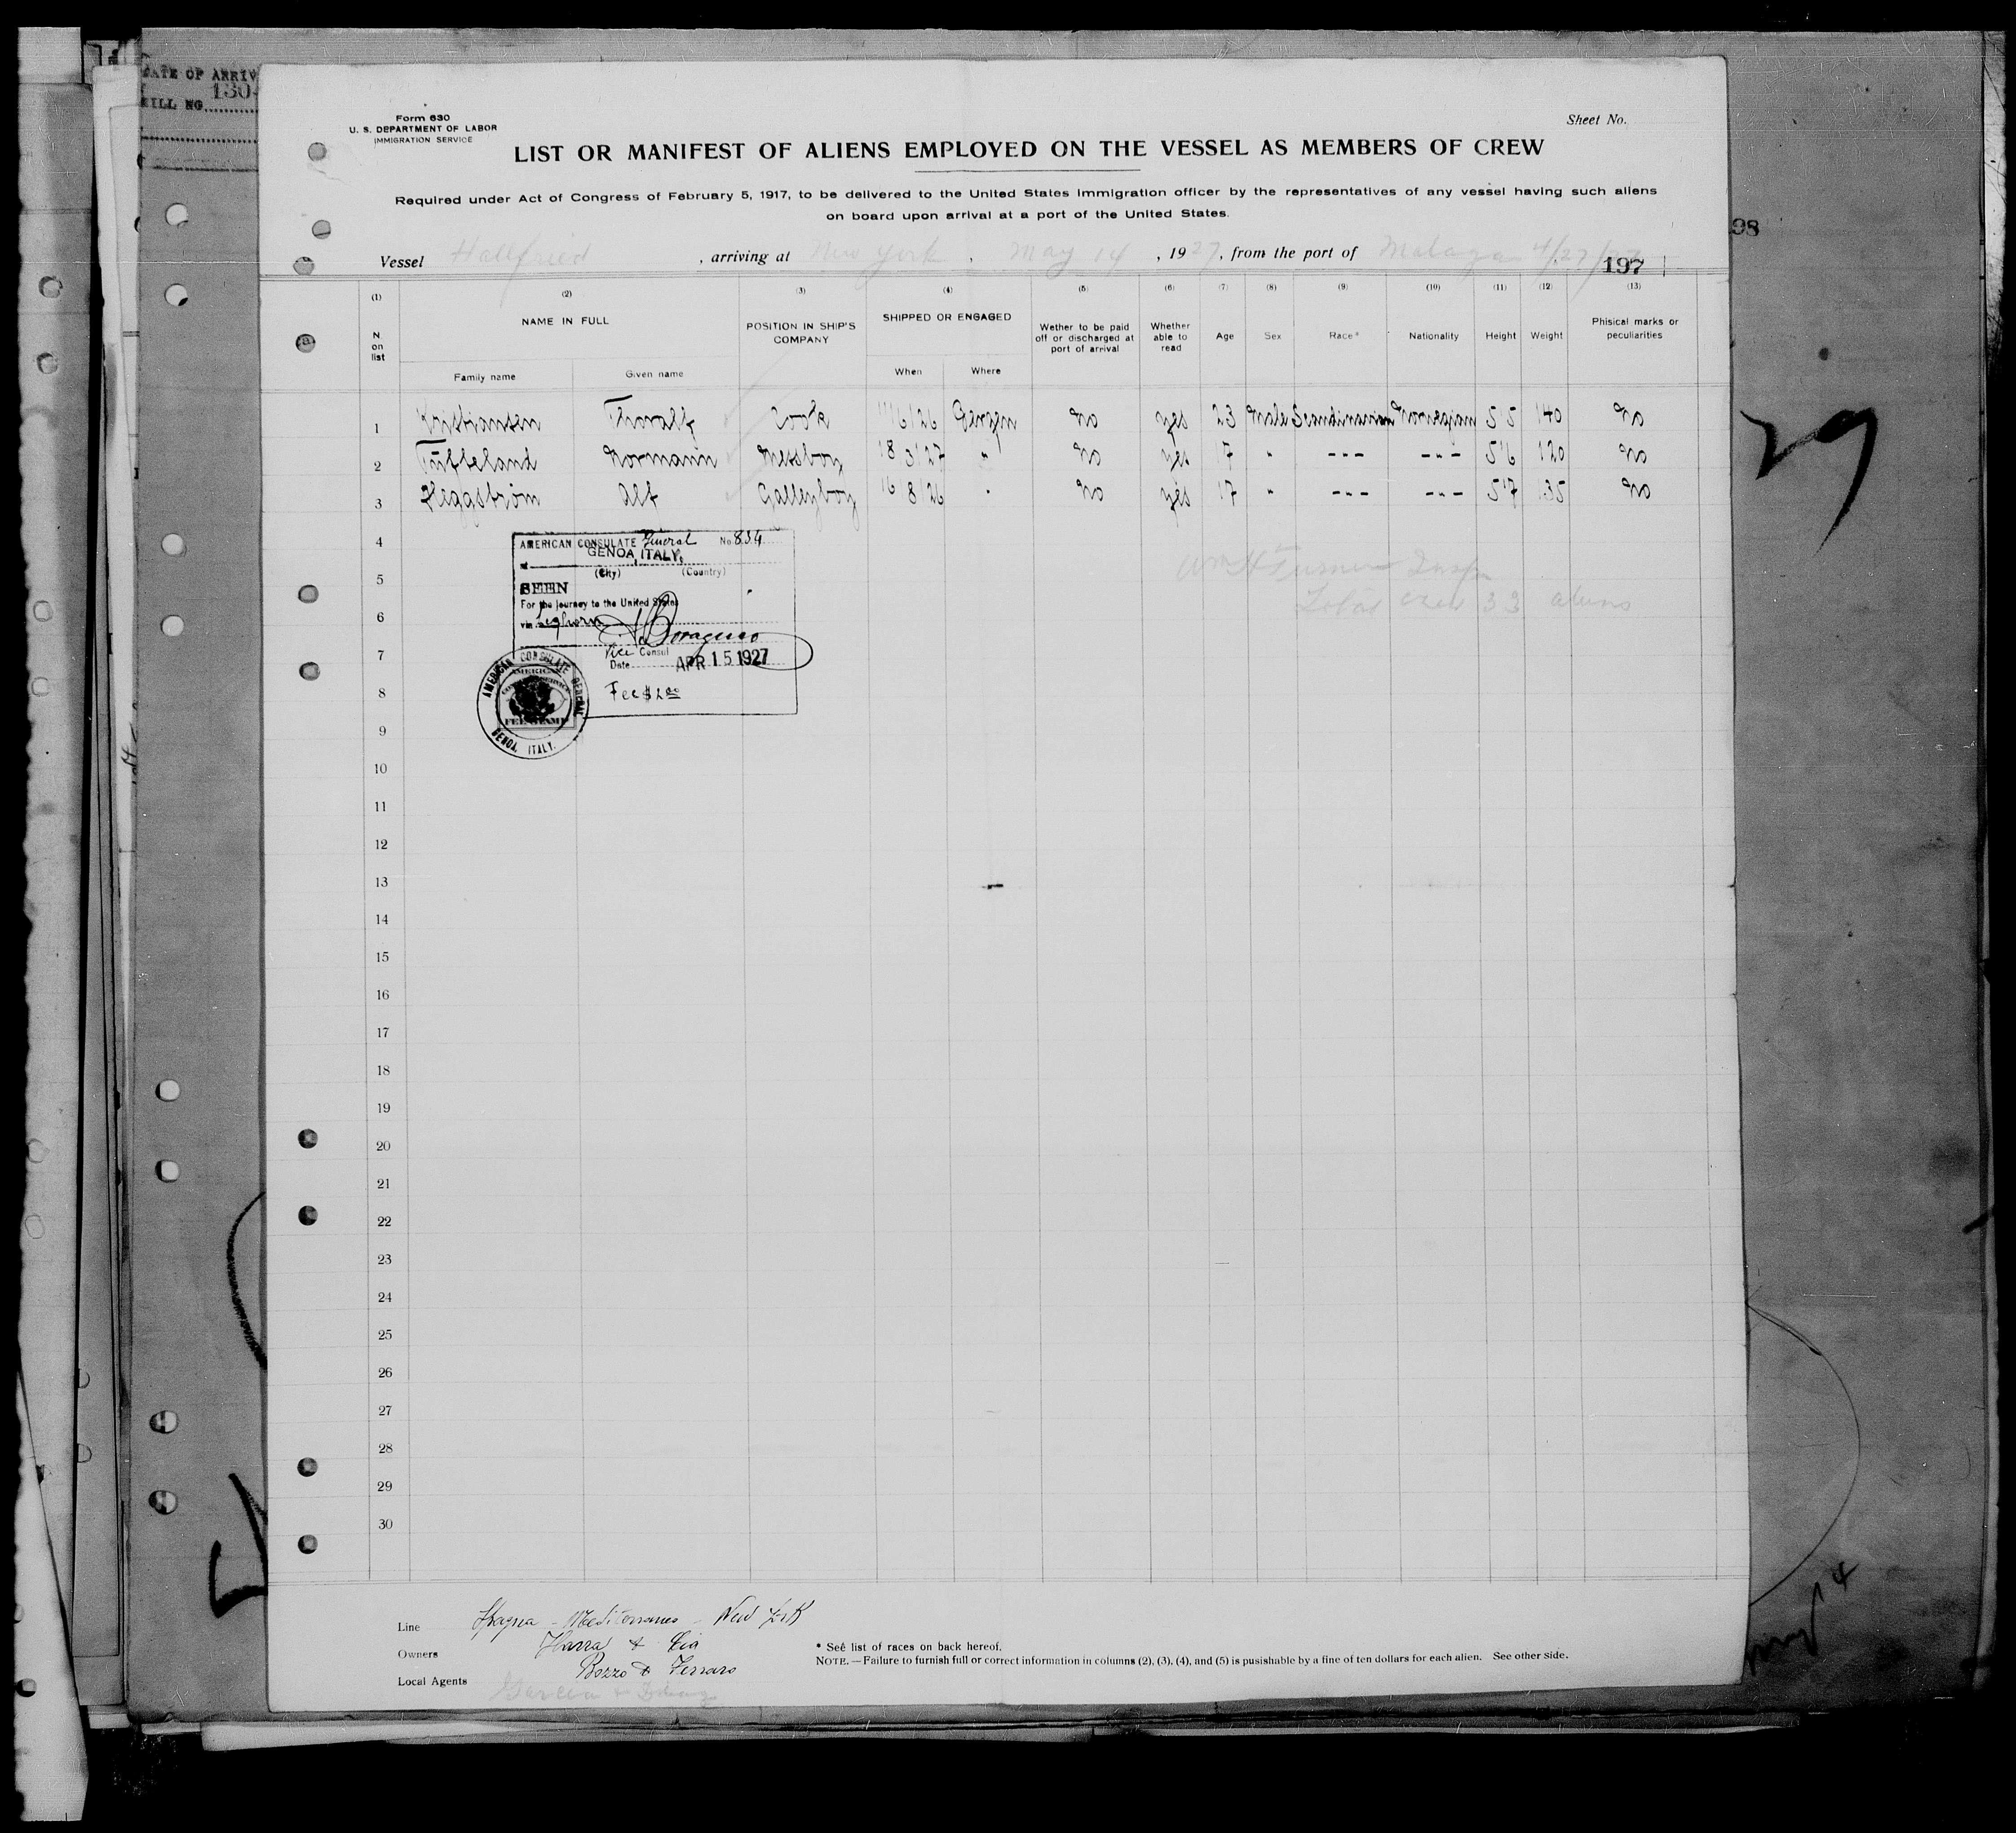 DATE OF ARRIV
130
Form 630
U. S. DEPARTMENT OF LABOR
IMMIGRATION SERVICE
Sheet No.
LIST OR MANIFEST OF ALIENS EMPLOYED ON THE VESSEL AS MEMBERS OF CREW
Required under Act of Congress of February 5, 1917, to be delivered to the United States Immigration officer by the representatives of any vessel having such aliens
on board upon arrival at a port of the United States.
98
Vessel Hallfried , arriving at New York , May 14 , 1927, from the port of Malaga 4/27/27
197
(1) (2) (3) (4) (5) (6) (7) (8) (9) (10) (11) (12) (13)
N on list NAME IN FULL POSITION IN SHIP'S COMPANY SHIPPED OR ENGAGED Wether to be paid off or discharged at port of arrival Whether able to read Age Sex Race* Nationality Height Weight Phisical marks or peculiarities
Family name Given name When Where
1 Kristiansen Thoralf Cook 11/6/26 Bergen No yes 23 Male Scandinavian Norwegian 5'5 140 No
2 Normann Messboy 18 3/27 " No yes 17 " -"- -"- 5'6 120 No
3 Heggstrøm Alf Galleyboy 16 8/26 " No yes 17 " -"- -"- 5'7 135 No
29
4
5
6
7
8
9
10
11
12
13
14
15
16
17
18
19
20
21
22
23
24
25
26
27
28
29
30
AMERICAN CONSULATE General No. 834
at GENOA, ITALY.
(City) (Country)
SEEN
For the journey to the United States
via Leghorn
Vice Consul
Date APR 15 1927
Fee $2.00
AMERICAN CONSULATE GENERAL
GENOA, ITALY.
Total crew 33 aliens
Line Spagna - Mediterraneo - New York
Owners & Cia
Local Agents Bozzo & Ferraro
Garcia & Diaz
* See list of races on back hereof.
NOTE. — Failure to furnish full or correct information in columns (2), (3), (4), and (5) is pusishable by a fine of ten dollars for each alien. See other side.